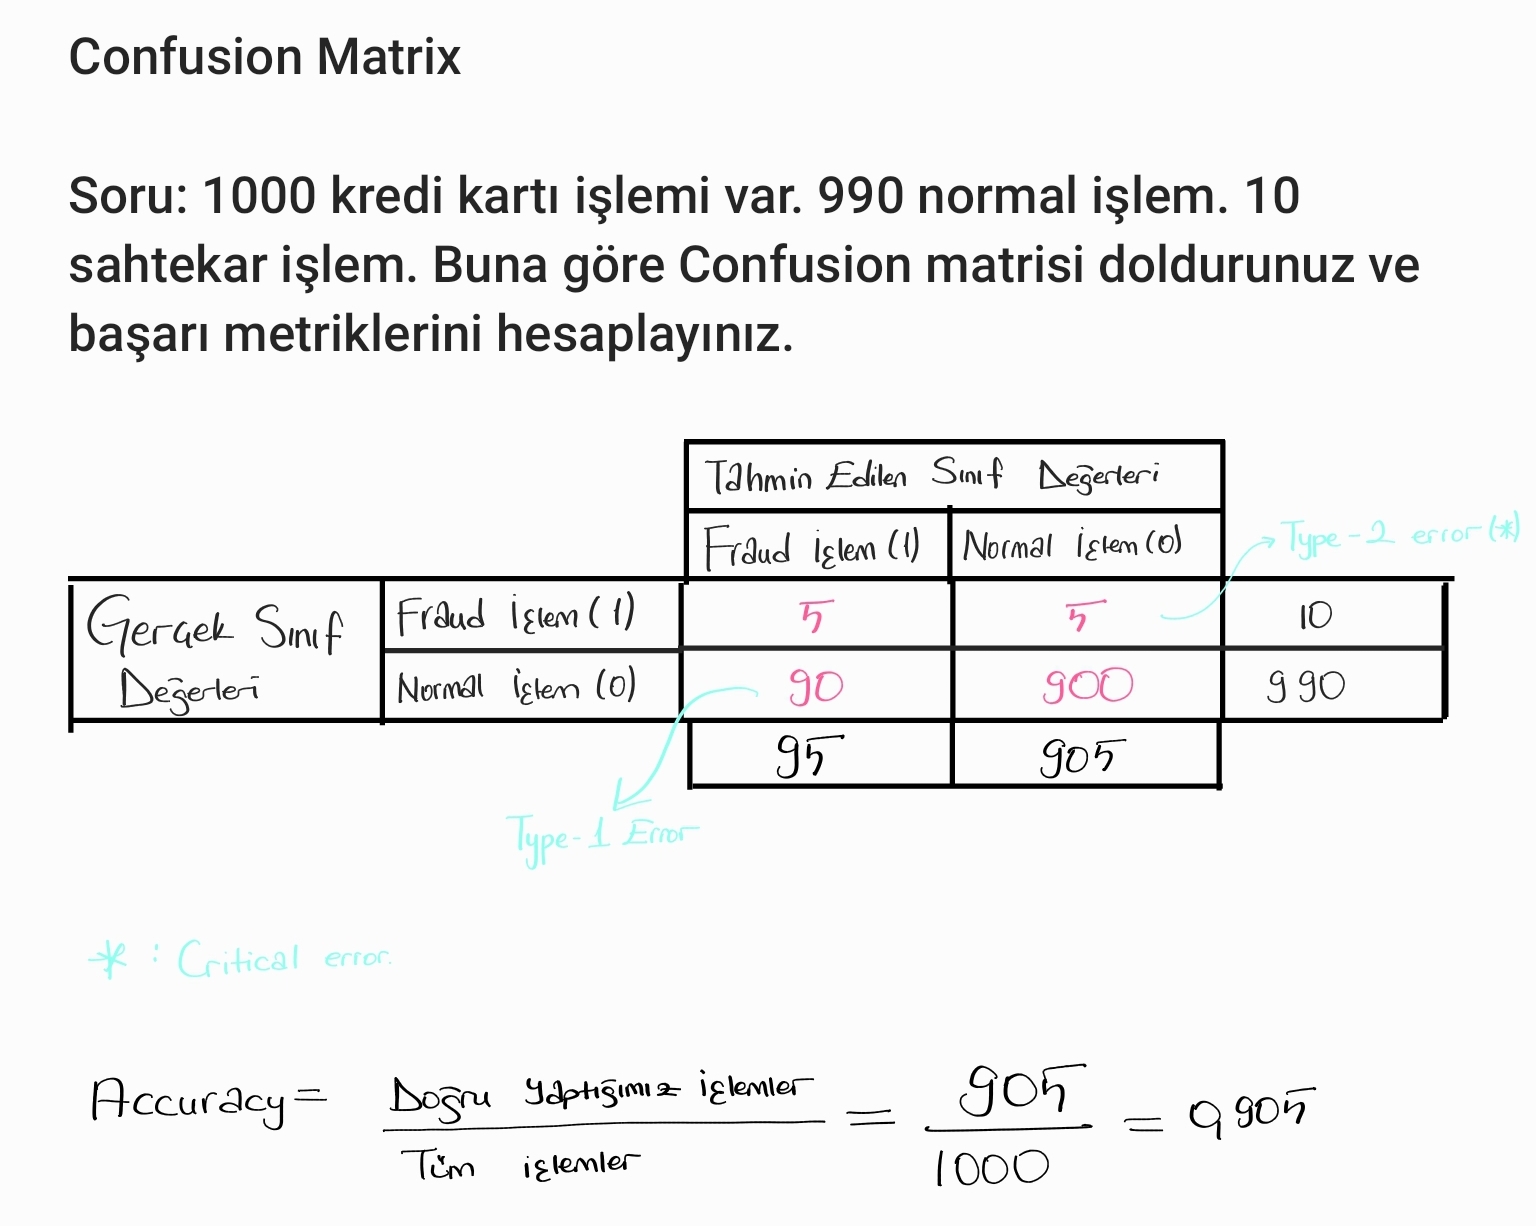 Confusion Matrix
Soru: 1000 kredi kartı işlemi var. 990 normal işlem. 10
sahtekar işlem. Buna göre Confusion matrisi doldurunuz ve
başarı metriklerini hesaplayınız.
Tahmin Edilen Sınıf Değerleri
Fraud İşlem (1) Normal İşlem (0)
Type-2 error (*)
Gerçek Sınıf
Değerleri
Fraud İşlem (1) 5 5 10
Normal İşlem (0) 90 900 990
95 905
Type-1 Error
* : Critical error.
Accuracy = Doğru yaptığımız işlemler = 905 = 0,905
Tüm işlemler 1000